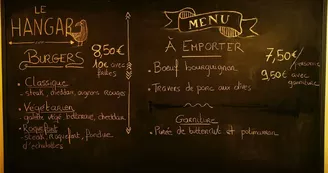 LE
HANGAR
BURGERS
8,50€
10€ avec
frites
- Classique
- steak, cheddar, oignons rouges
- Végétarien
- galette végé, betterave, cheddar
- Roquefort
- steak, roquefort, fondue
d'échalotes
MENU
À EMPORTER
- Bœuf bourguignon
- Travers de porc aux olives
7,50€
/personne
9,50€ avec
garniture
Garniture
- Purée de butternut et potimarron